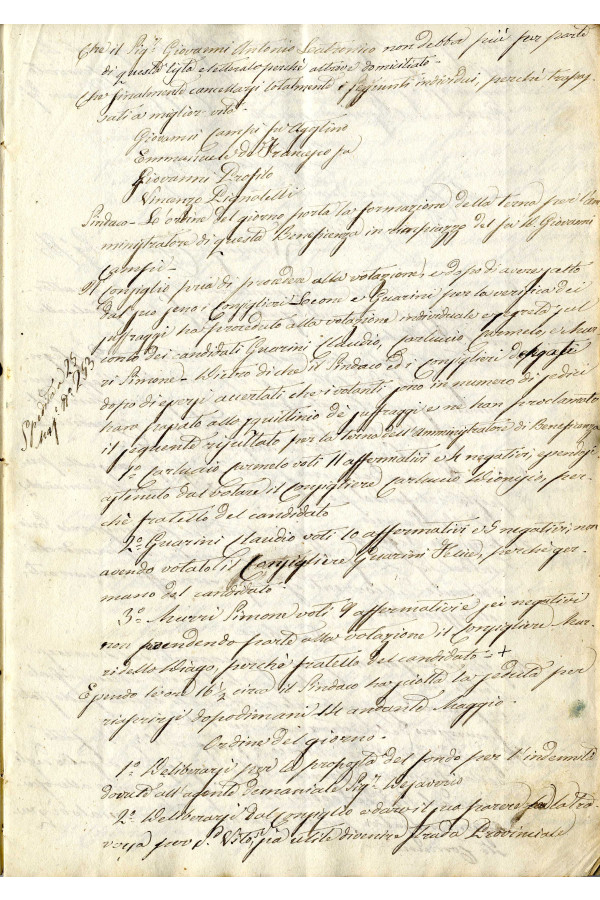 Che il Sig.r Giovanni Antonio Scatronico non debba più far parte
di questa lista elettorale perchè altrove domiciliato -
Che finalmente cancellarsi totalmente i seguenti individui, perchè trapas
sati a miglior vita
Giovanni Campi fu Agostino
Emmanuele di Francesco fu
Giovanni Profilo
Vincenzo Pignatelli
Sindaco - Lo ordine del giorno porta la formazione della terna per l'Am
ministratore di questa Beneficenza in rimpiazzo del fu D. Giovanni
Campi -
Il Consiglio pria di procedere alla votazione, e dopo di avere eletto
dal suo seno i Consiglieri Leconi e Guarini per la verifica dei
suffraggi ha proceduto alla votazione individuale e segreta sul
conto dei candidati Guarini Claudio, Carluccio Carmelo, e Mur
ri Simone - Dietro di che il Sindaco ed i Consiglieri delegati
dopo di essersi accertati che i votanti sono in numero di sedici
han passato allo squittinio de' suffraggi e ne han proclamato
il seguente risultato per la terna dell'Amministratore di Beneficenza
1.o Carluccio Carmelo voti 11 affermativi e 4 negativi, essendosi
astenuto dal votare il Consigliere Carluccio Dionigio, per-
chè fratello del candidato
2.o Guarini Claudio voti 10 affermativi e 5 negativi, non
avendo votato il Consigliere Guarini Felice, perchè ger-
mano del candidato
3.o Murri Simone voti 9 affermativi e sei negativi
non prendendo parte alla votazione il Consigliere Mur-
ri dello Biago, perchè fratello del candidato - +
Essendo le ore 16 ½ circa il Sindaco ha sciolta la seduta per
riunirsi dopodimani 14 andante Maggio -
Ordine del giorno -
1.o Deliberarsi per la proposta del fondo per l'indennità
dovuta all'agente demaniale Sig.r
2.o Deliberarsi dal Consiglio e dare il suo parere se la Tra
versa per S. Vito, sia utile divenire strada Provinciale
Spedita a 25
Mag.o N.o 233